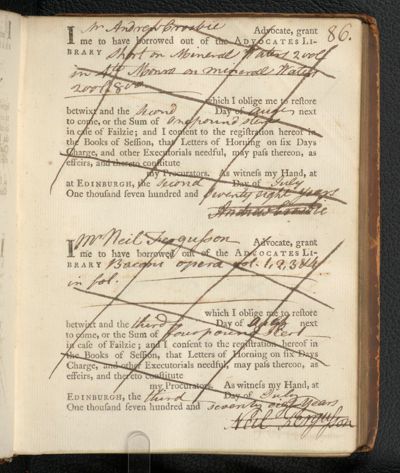 86.
I Mr Andrew Crosbie Advocate, grant
me to have borrowed out of the ADVOCATES LI-
BRARY Short on Mineral Waters 2 voll
in 4to Monro on mineral Waters
2 voll 8vo
which I oblige me to reſtore
betwixt and the second Day of next
to come, or the Sum of one pound ster
in caſe of Failzie; and I conſent to the regiſtration hereof in
the Books of Seſſion, that Letters of Horning on ſix Days
Charge, and other Executorials needful, may paſs thereon, as
effeirs, and thereto conſtitute
my Procurators. As witneſs my Hand, at
at EDINBURGH, the Second Day of July
One thouſand ſeven hundred and seventy eight years
Andrew Crosbie
I Mr Neil Fergusson Advocate, grant
me to have borrowed out of the ADVOCATES LI-
BRARY Bacons opera vol. 1, 2, 3 & 4
in fol.
which I oblige me to reſtore
betwixt and the third Day of next
to come, or the Sum of four pound
in caſe of Failzie; and I conſent to the regiſtration hereof in
the Books of Seſſion, that Letters of Horning on ſix Days
Charge, and other Executorials needful, may paſs thereon, as
effeirs, and thereto conſtitute
my Procurators. As witneſs my Hand, at
EDINBURGH, the third Day of July
One thouſand ſeven hundred and seventy eight years
Neil Fergusson